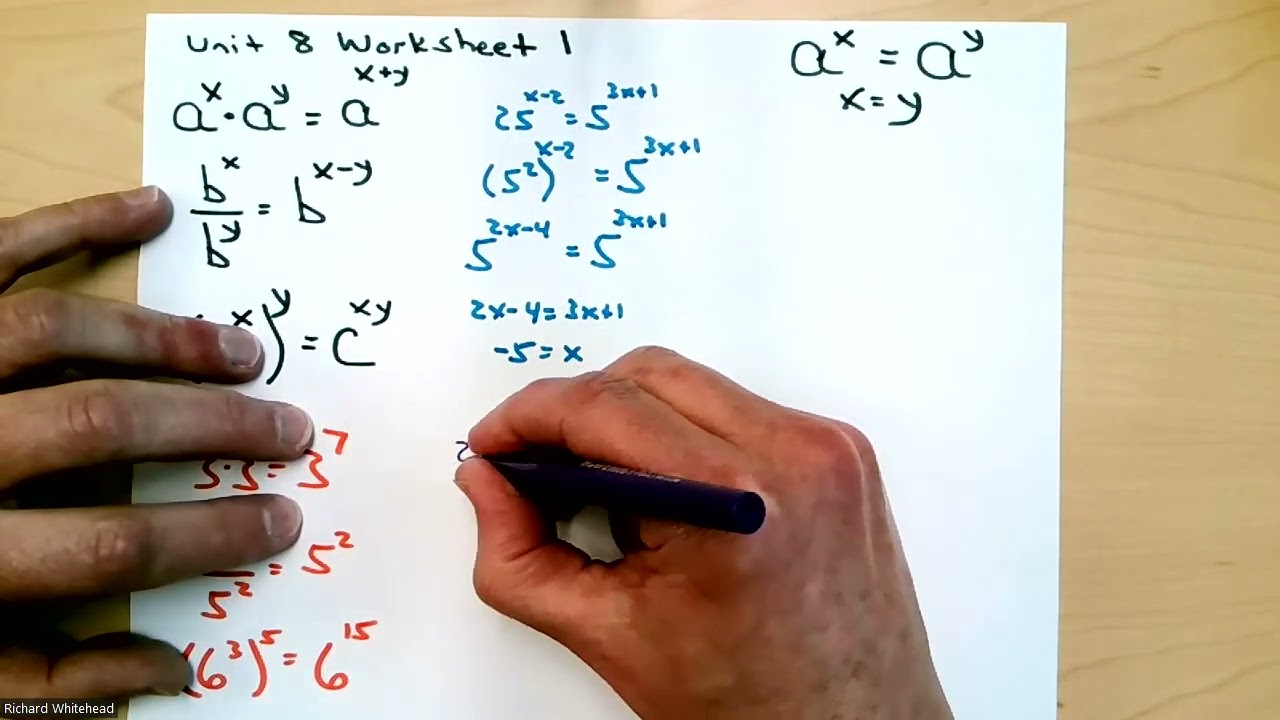 Unit 8 Worksheet 1
a^x · a^y = a^(x+y)
b^x / b^y = b^(x-y)
^x)^y = c^(xy)
= 3^7
/ 5^2 = 5^2
(6^3)^5 = 6^15
25^(x-2) = 5^(3x+1)
(5^2)^(x-2) = 5^(3x+1)
5^(2x-4) = 5^(3x+1)
2x-4=3x+1
-5=x
a^x = a^y
x=y
Richard Whitehead